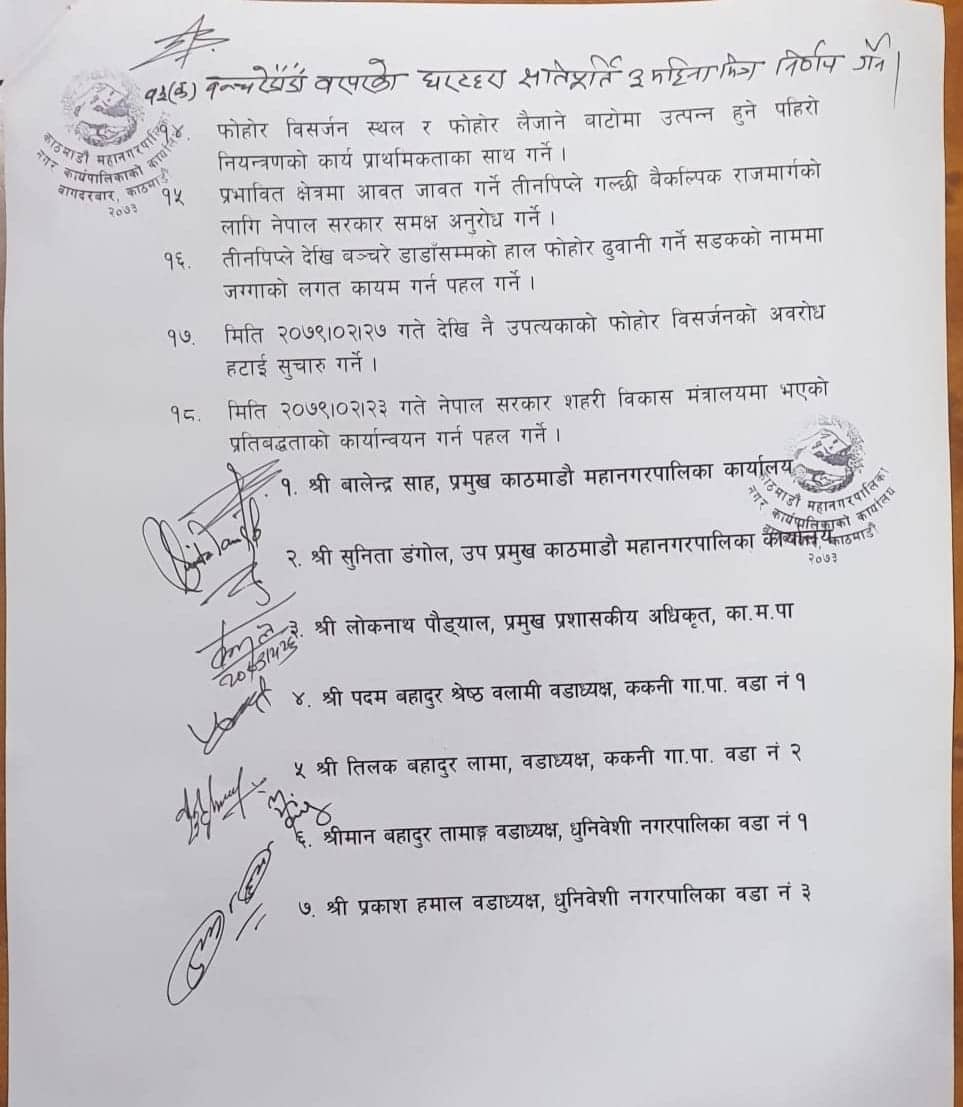 १३(क) बञ्चरेडाँडा वरपरको घरटहरा क्षतिपूर्ति ३ महिना भित्र निर्णय गर्ने।
काठमाडौं महानगरपालिका
नगर कार्यपालिकाको कार्यालय
बागदरबार, काठमाडौं
२०७३
१४. फोहोर विसर्जन स्थल र फोहोर लैजाने वाटोमा उत्पन्न हुने पहिरो
नियन्त्रणको कार्य प्राथमिकताका साथ गर्ने ।
१५ प्रभावित क्षेत्रमा आवत जावत गर्ने तीनपिप्ले गल्छी बैकल्पिक राजमार्गको
लागि नेपाल सरकार समक्ष अनुरोध गर्ने ।
१६. तीनपिप्ले देखि बञ्चरे डाडाँसम्मको हाल फोहोर ढुवानी गर्ने सडकको नाममा
जग्गाको लगत कायम गर्न पहल गर्ने ।
१७. मिति २०७९।०२।२७ गते देखि नै उपत्यकाको फोहोर विसर्जनको अवरोध
हटाई सुचारु गर्ने ।
१८. मिति २०७९।०२।२३ गते नेपाल सरकार शहरी विकास मंत्रालयमा भएको
प्रतिबद्धताको कार्यान्वयन गर्न पहल गर्ने ।
१. श्री बालेन्द्र साह, प्रमुख काठमाडौ महानगरपालिका कार्यालय
काठमाडौं महानगरपालिका
नगर कार्यपालिकाको कार्यालय
काठमाडौं
२०७३
२. श्री सुनिता डंगोल, उप प्रमुख काठमाडौ महानगरपालिका कार्यालय
३. श्री लोकनाथ पौड्याल, प्रमुख प्रशासकीय अधिकृत, का.म.पा
४. श्री पदम बहादुर श्रेष्ठ वलामी वडाध्यक्ष, ककनी गा.पा. वडा नं १
५ श्री तिलक बहादुर लामा, वडाध्यक्ष, ककनी गा.पा. वडा नं २
६. श्रीमान बहादुर तामाङ्ग वडाध्यक्ष, धुनिवेशी नगरपालिका वडा नं १
७. श्री प्रकाश हमाल वडाध्यक्ष, धुनिवेशी नगरपालिका वडा नं ३